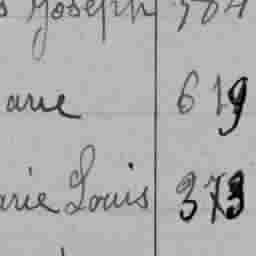 Joseph 584
arie 619
arie Louis 373